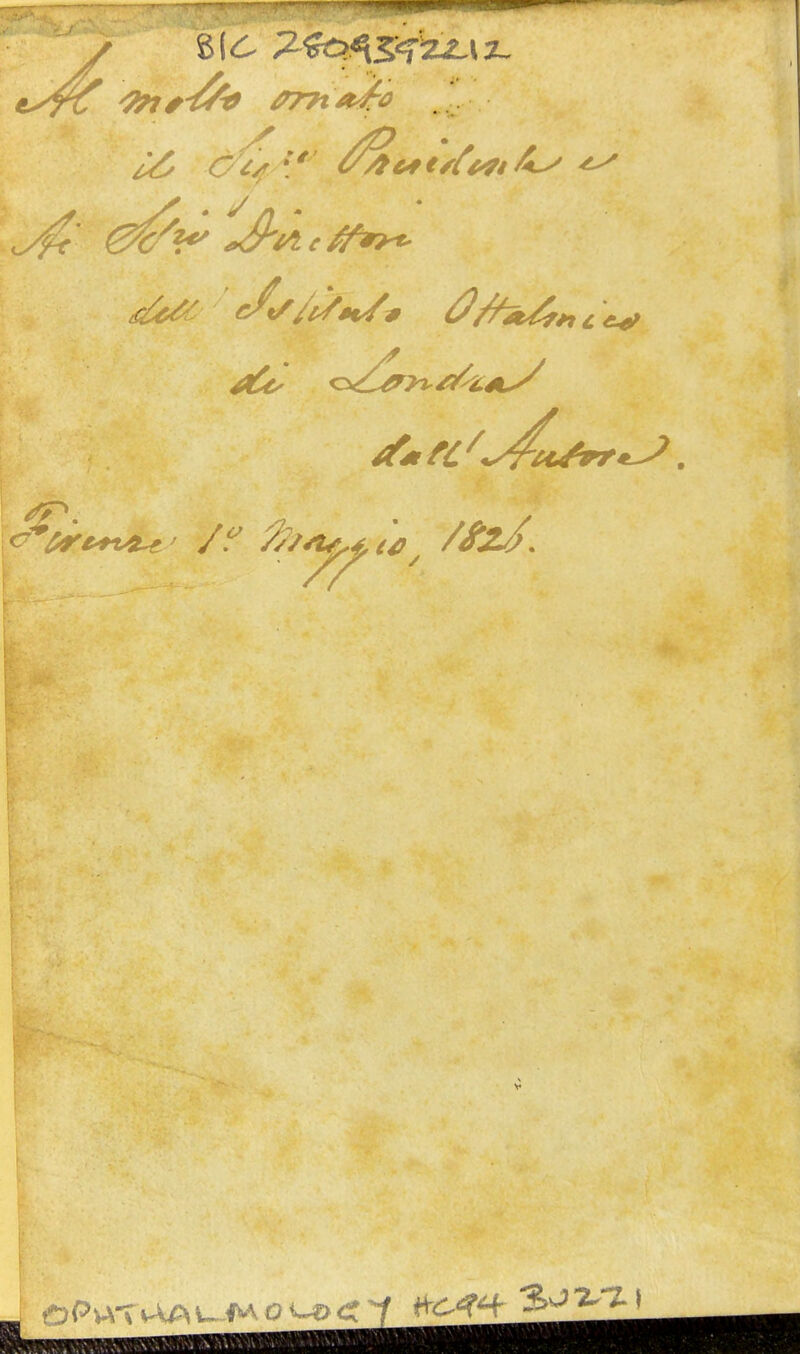 BIC 2809392212
Al molto ornato
il Sig.re Presidente e
Ai Direttori
dell' Istituto Ottalmico
di Londra
dall' Autore.
Firenze 1.º Maggio, 1826.
OPHTHALMOLOGY HC94 BUZZI